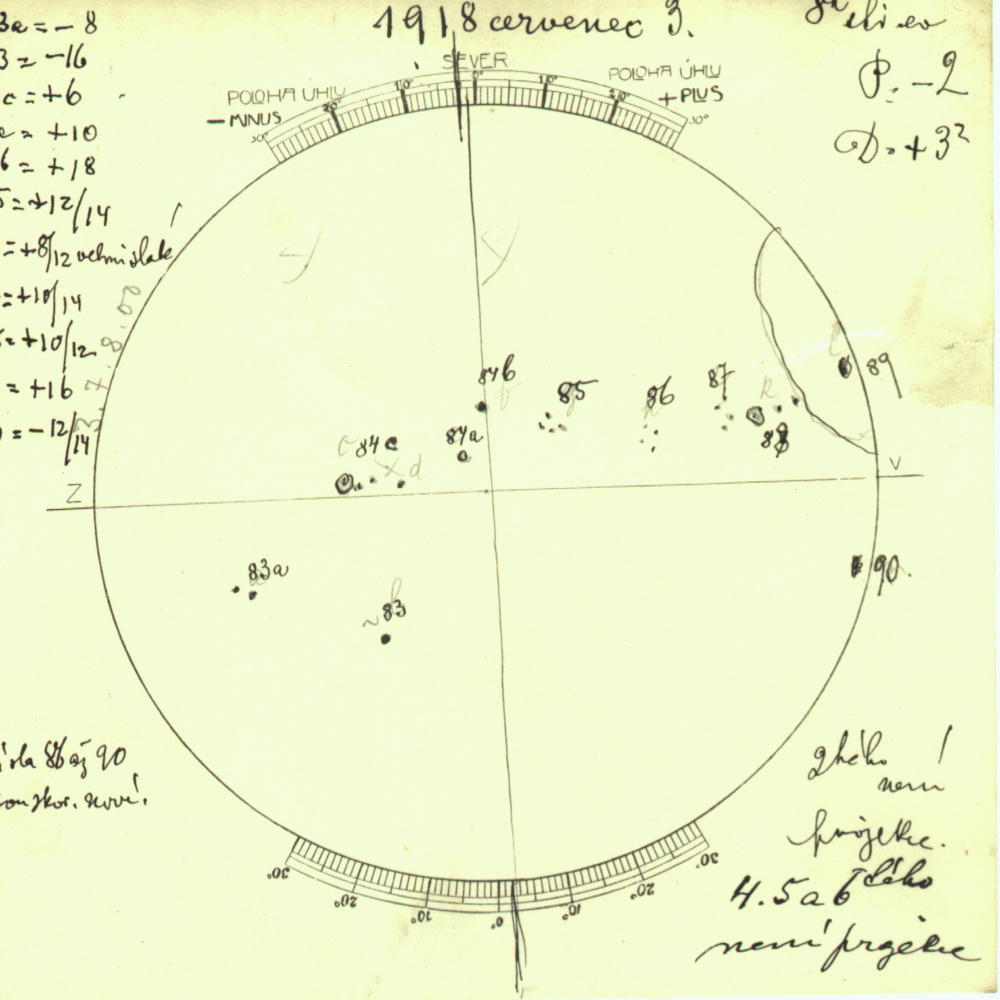 1918 cervenec 3.
3a = - 8
3 = -16
c = +6
a = +10
6 = +18
5 = +12/14
= +8/12 velmi slabé
= +10/14
= +10/12
= +16
= -12/14
P. -2
D. + 3²
SEVER
POLOHA ÚHLU
- MINUS
POLOHA ÚHLU
+ PLUS
30° 20° 10° 0° 10° 20° 30°
3. 7. 8.00
84b
85
86
87
89
84c
84a
88
c
d
Z
V
83a
90.
83
90
nové.
2hého
není
projekce.
4. 5 a 6 tého
není projekce
30° 20° 10° 0° 10° 20° 30°